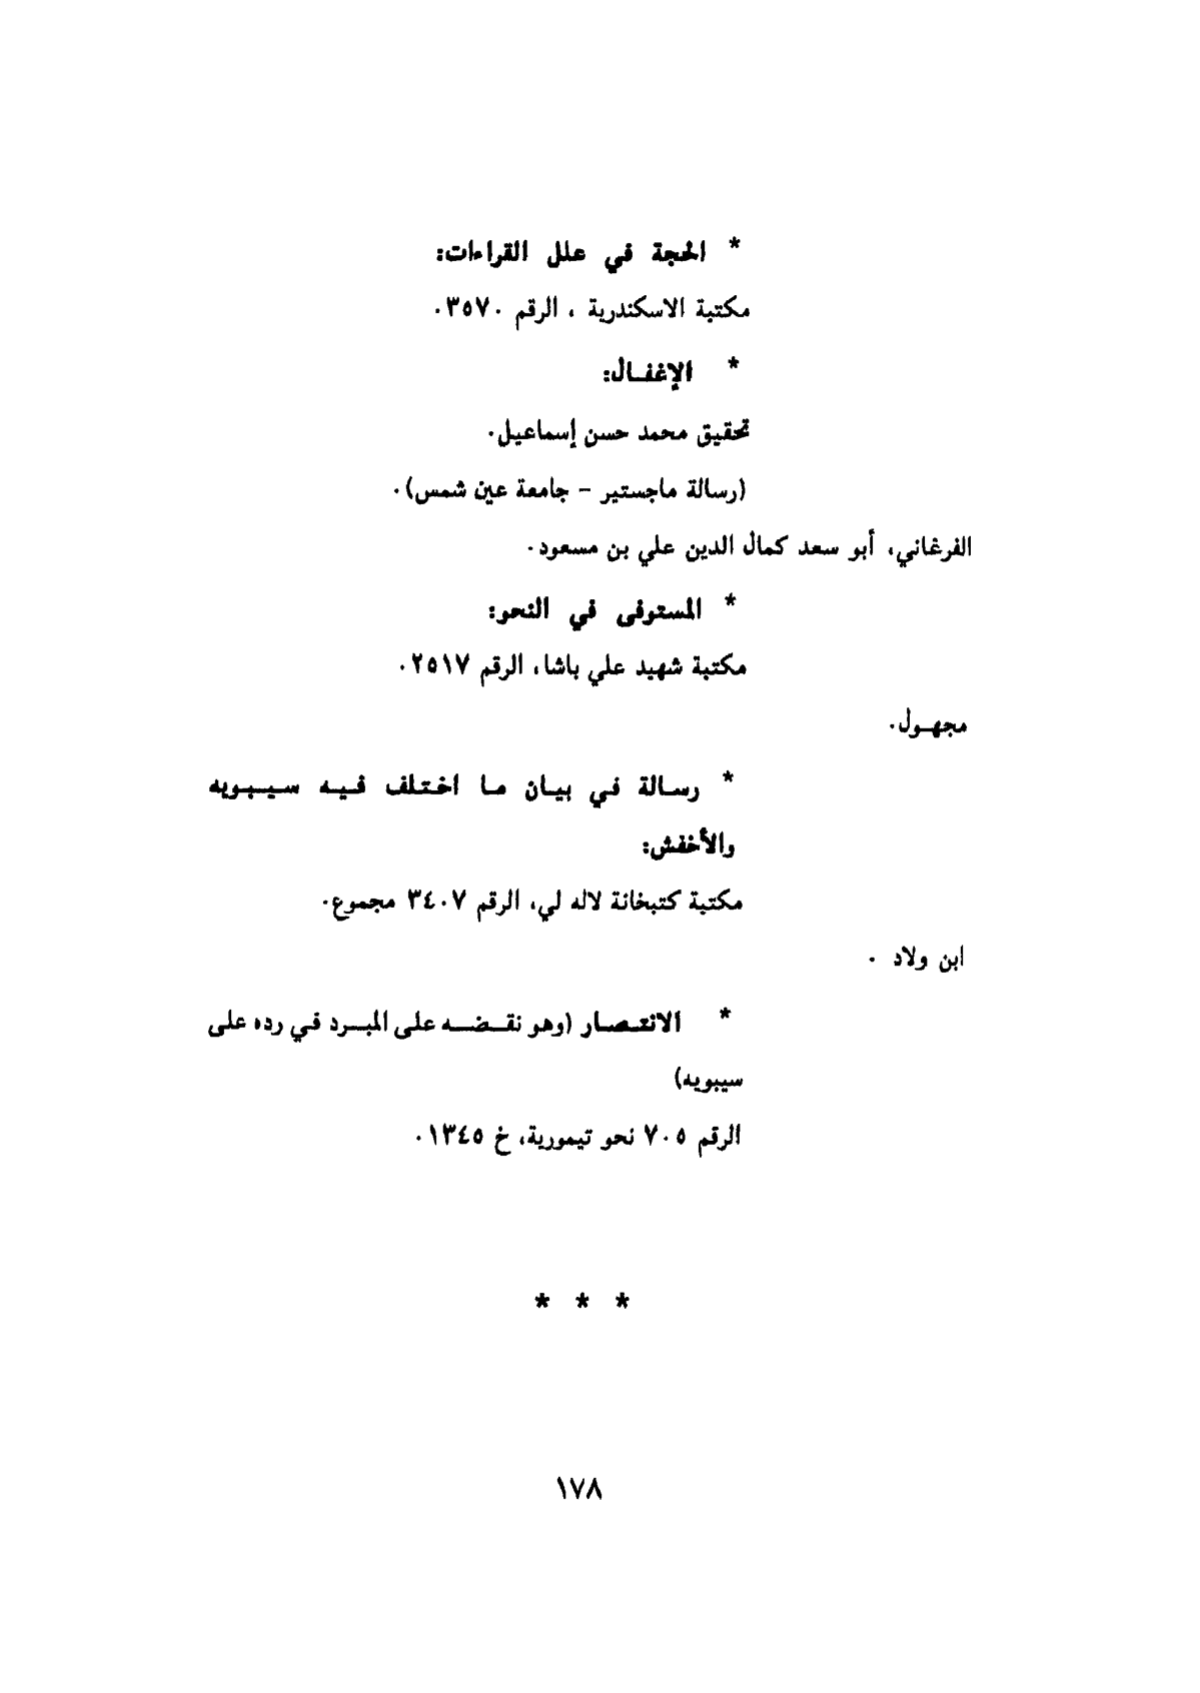 * الحجة في علل القراءات:
مكتبة الاسكندرية ، الرقم ٣٥٧٠.
* الإغفـال:
تحقيق محمد حسن إسماعيل.
(رسالة ماجستير – جامعة عين شمس).
الفرغاني، أبو سعد كمال الدين علي بن مسعود.
* المستوفى في النحو:
مكتبة شهيد علي باشا، الرقم ٢٥١٧.
مجهـول.
* رسـالة في بيـان مـا اخـتـلف فـيـه سـيـبـويه
والأخفش:
مكتبة كتبخانة لاله لي، الرقم ٣٤٠٧ مجموع.
ابن ولاد .
* الانتـصـار (وهـو نقـضـه على المبـرد في رده على
سيبويه)
الرقم ٧٠٥ نحو تيمورية، خ ١٣٤٥.
* * *
١٧٨